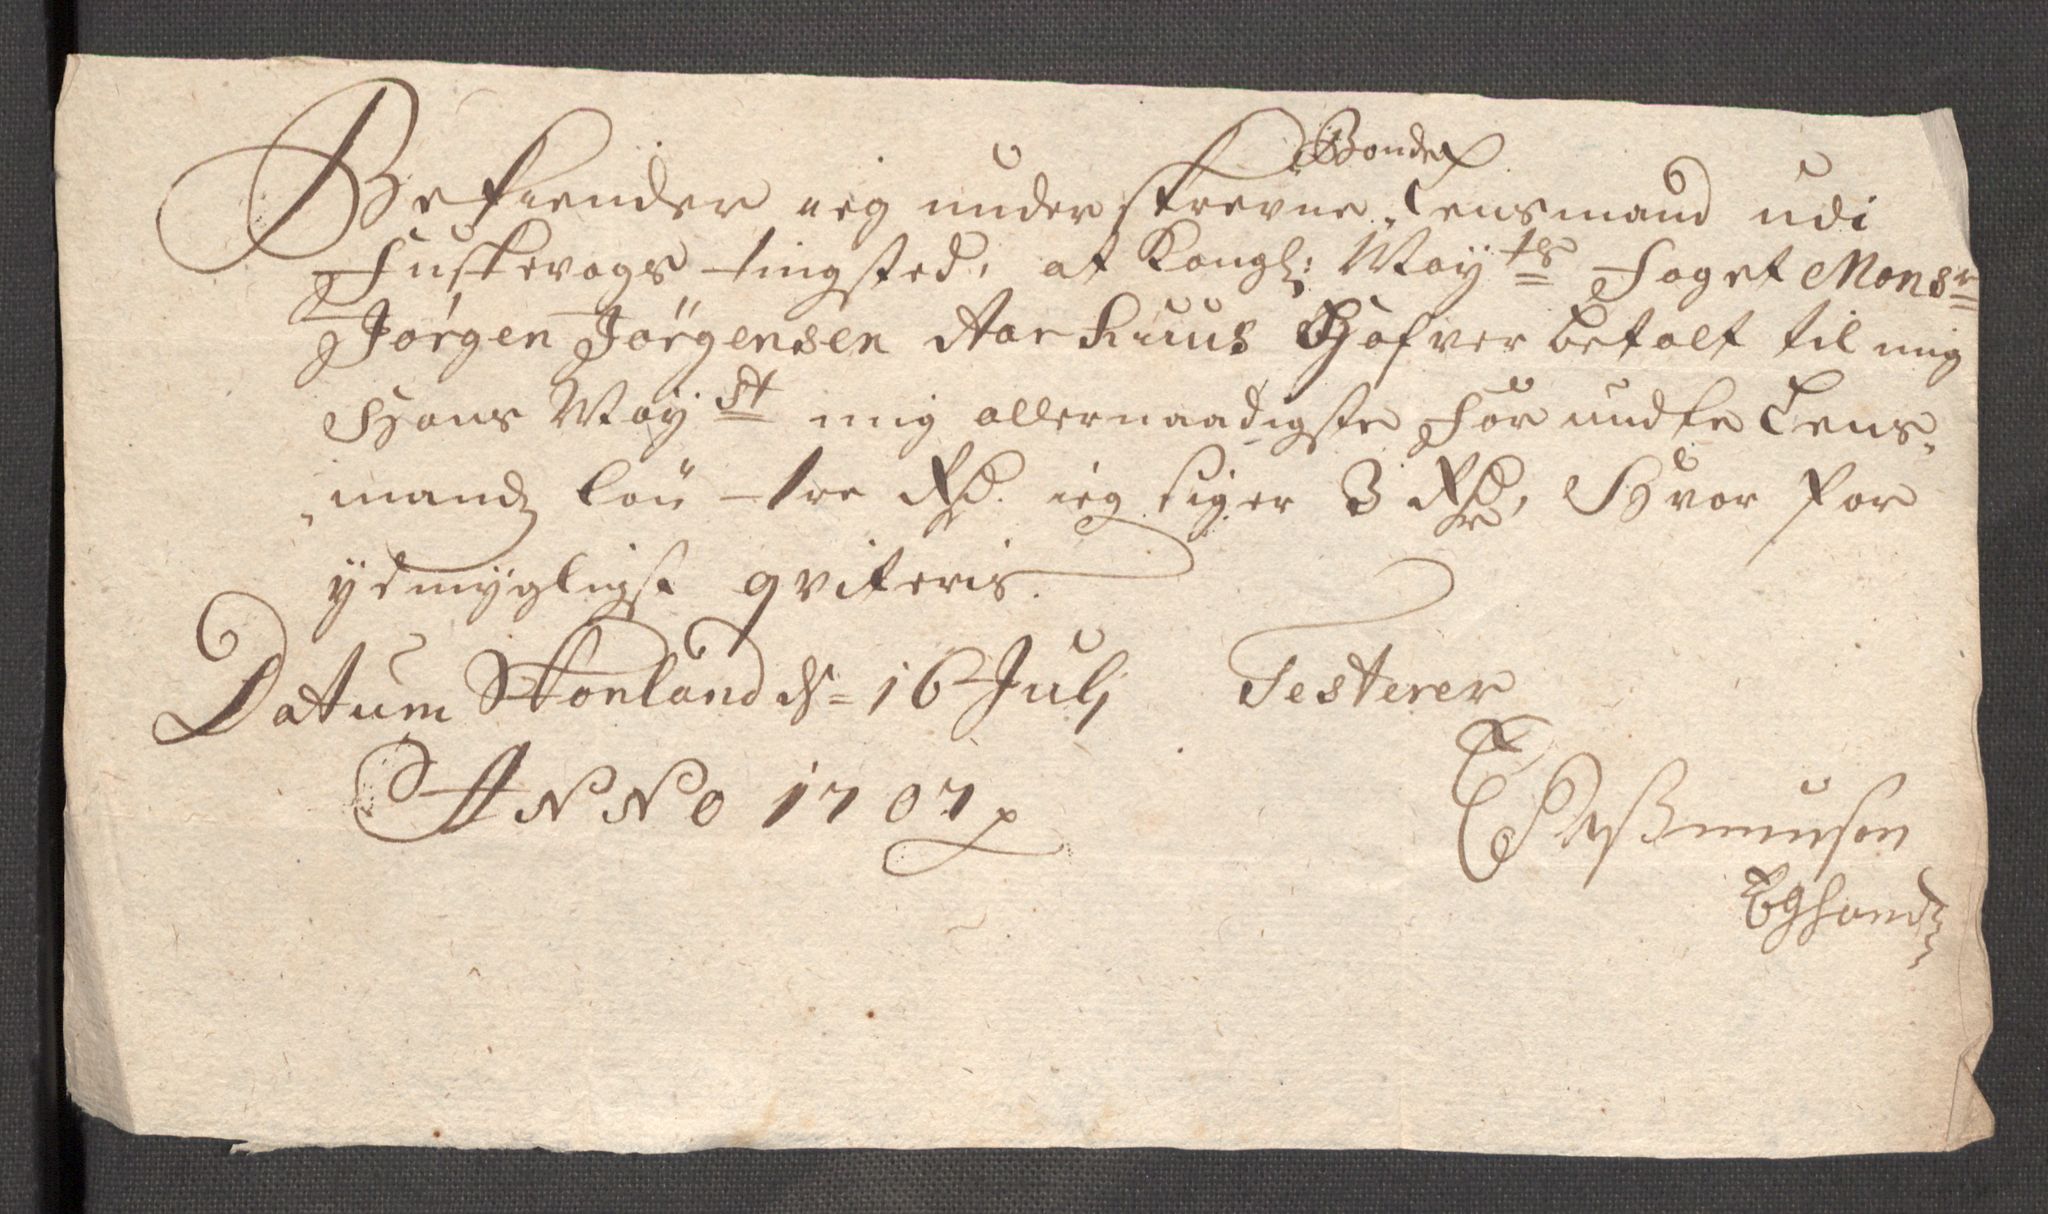 Bonde
Bekiender ieg under skrevne Lensmand udi
Fuskevogs tingsted, at Kongl: May:ts Foget Monsr
Jørgen Jørgensen Aarhuus Hafver betalt til mig
Hans May:st mig allernaadigste For undte Lens-
mandz lön tre Rd. ieg siger 3 Rdr, Hvor for
ydmygligst qviteris.
Datum d= 16 Julj Testerer
ANNO 1707
E Rasmuson
Eghand